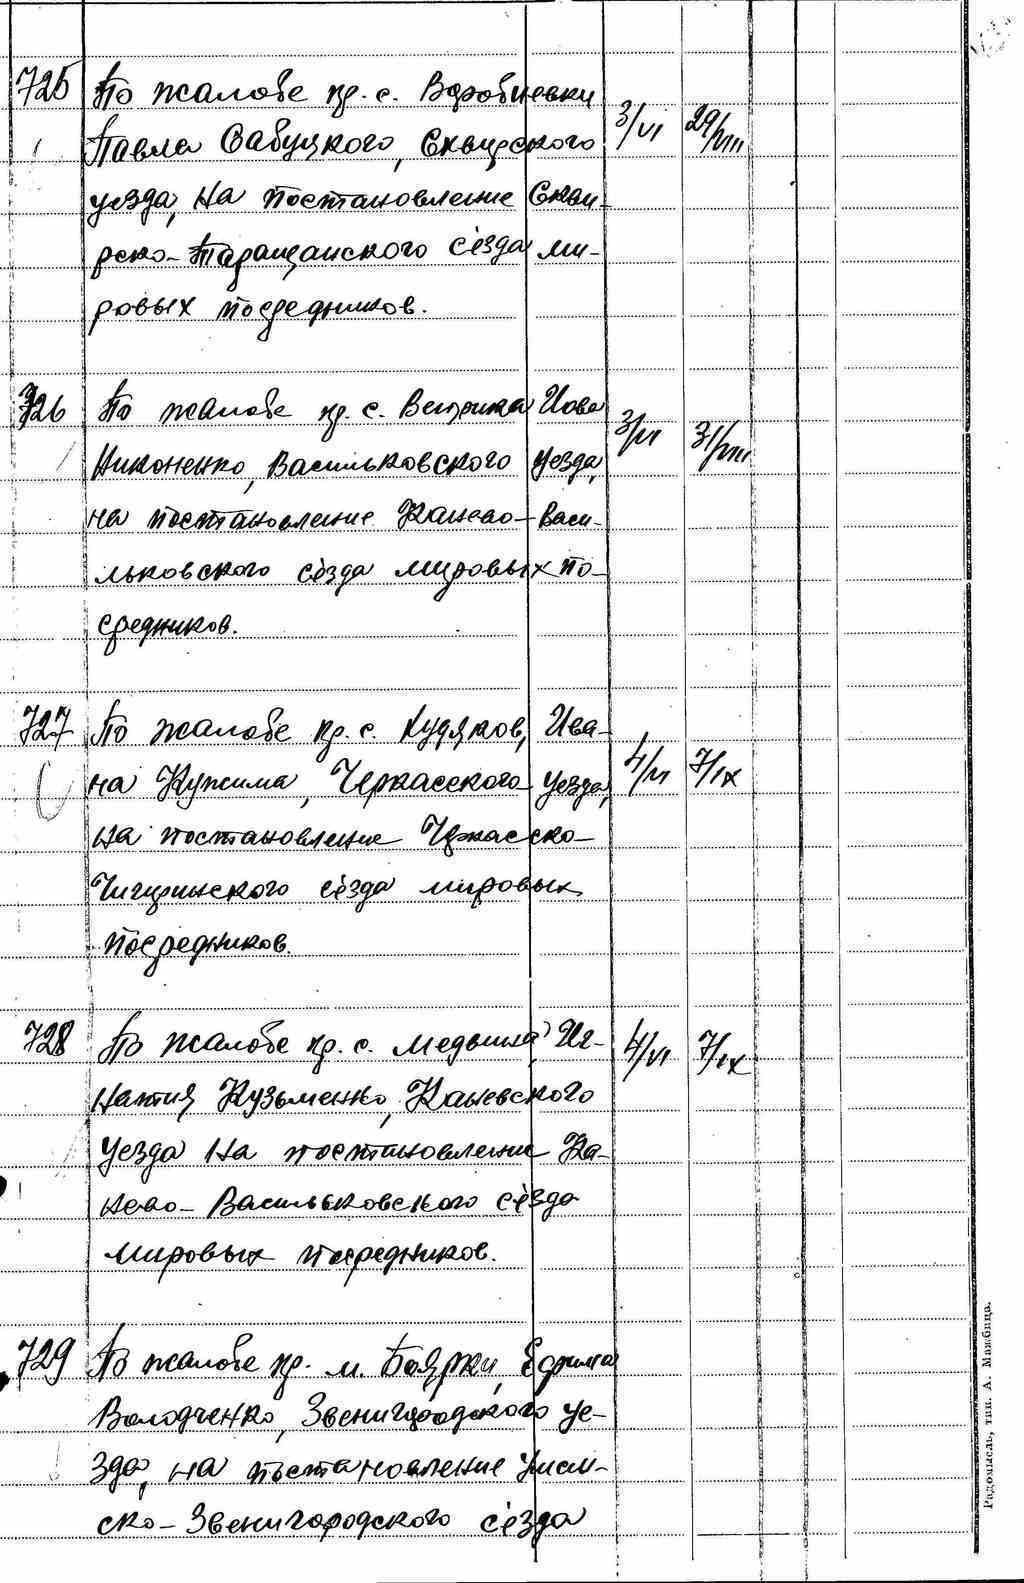 725 По жалобе кр. с. Воробиевки
Павла Сабуцкого, Сквирского 3/VI 29/VIII
уезда, на постановление Скви-
рско-Таращанского сьезда ми-
ровых посредников.
726 По жалобе кр. с. Ветрика Иова 3/VI 31/VIII
Никоненко, Васильковского уезда,
на постановление Канево-Васи-
льковского сьезда мировых по-
средников.
727 По жалобе кр. с. Худяков, Ива-
на Кужима, Черкасского уезда, 4/VI 7/IX
на постановление Черкасско-
Чигиринского сьезда мировых
посредников.
728 По жалобе кр. с. Медвина Иг- 4/VI 7/IX
натия Кузьменко, Каневского
уезда на постановление Ка-
нево-Васильковского сьезда
мировых посредников.
729 По жалобе кр. м. Боярки, Ефима
Володченко, Звенигородского уе-
зда, на постановление Уман-
ско-Звенигородского сьезда
Радомысль, тип. А. Мажбица.